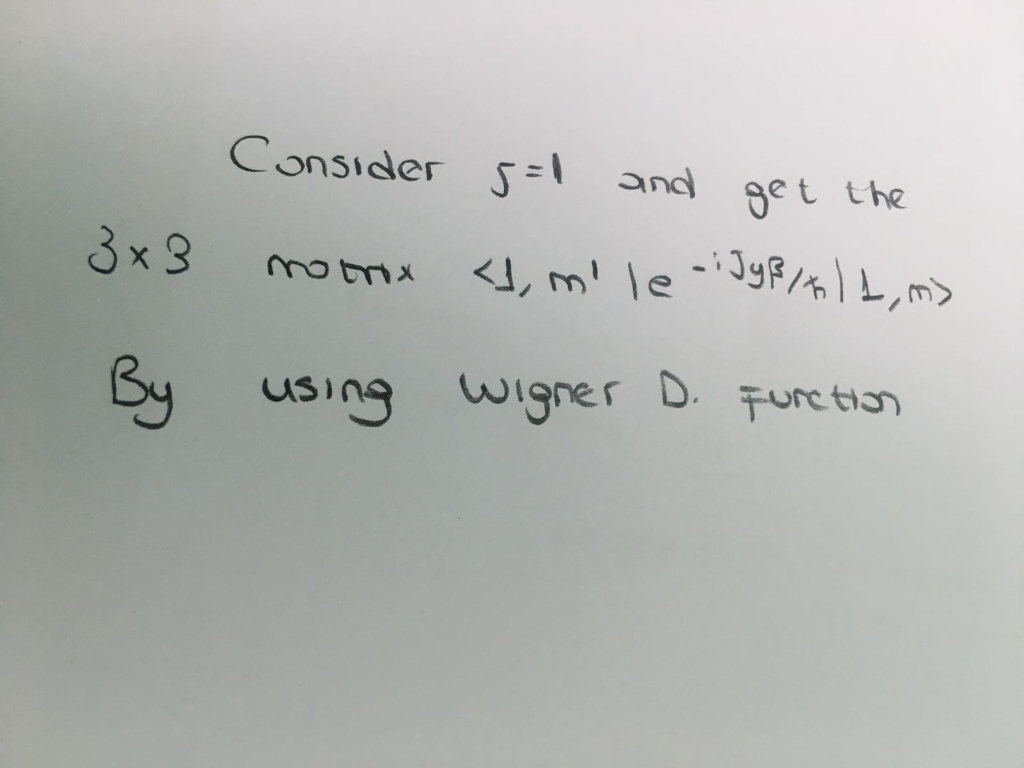 Consider j=1 and get the
3x3 matrix <1, m' |e -iJyβ/ħ | 1, m>
By using Wigner D. Function